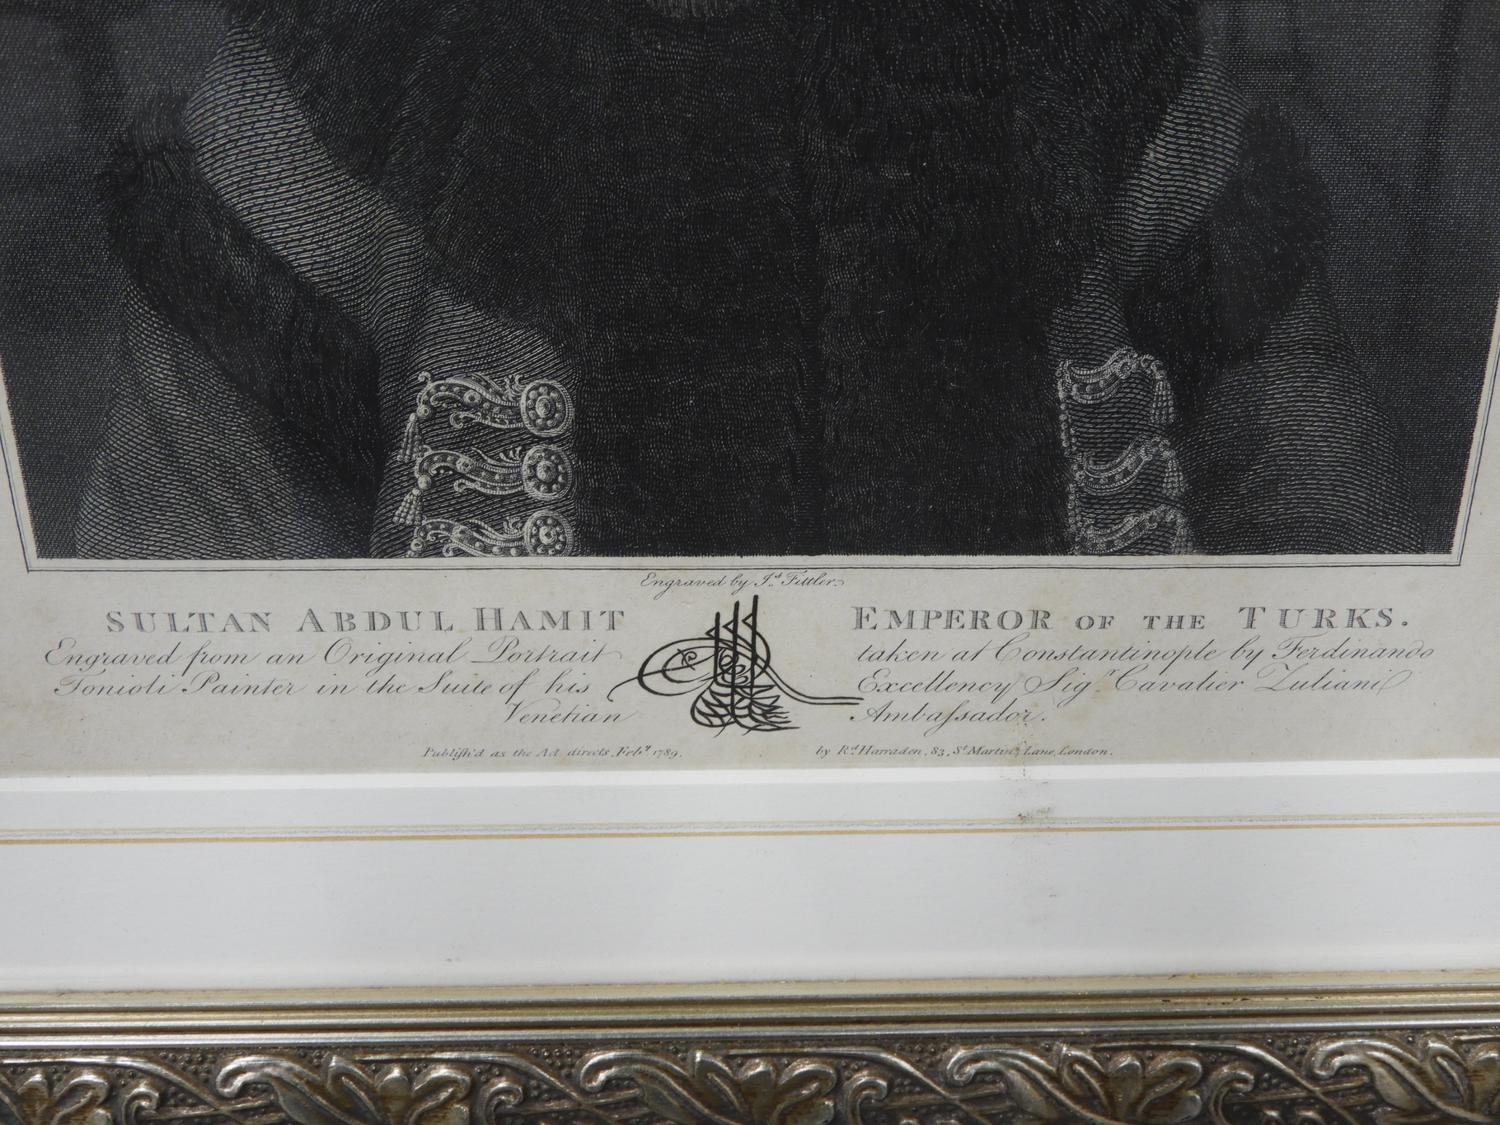 Engraved by Jas. Fittler.
SULTAN ABDUL HAMIT EMPEROR OF THE TURKS.
Engraved from an Original Portrait taken at Constantinople by Ferdinando
Tonioli Painter in the Suite of his Excellency Sigr. Cavalier Zuliani
Venetian Ambaſsador.
Publiſh'd as the Act directs, Feby. 1789. by Rd. Harraden, 83, St. Martins Lane, London.